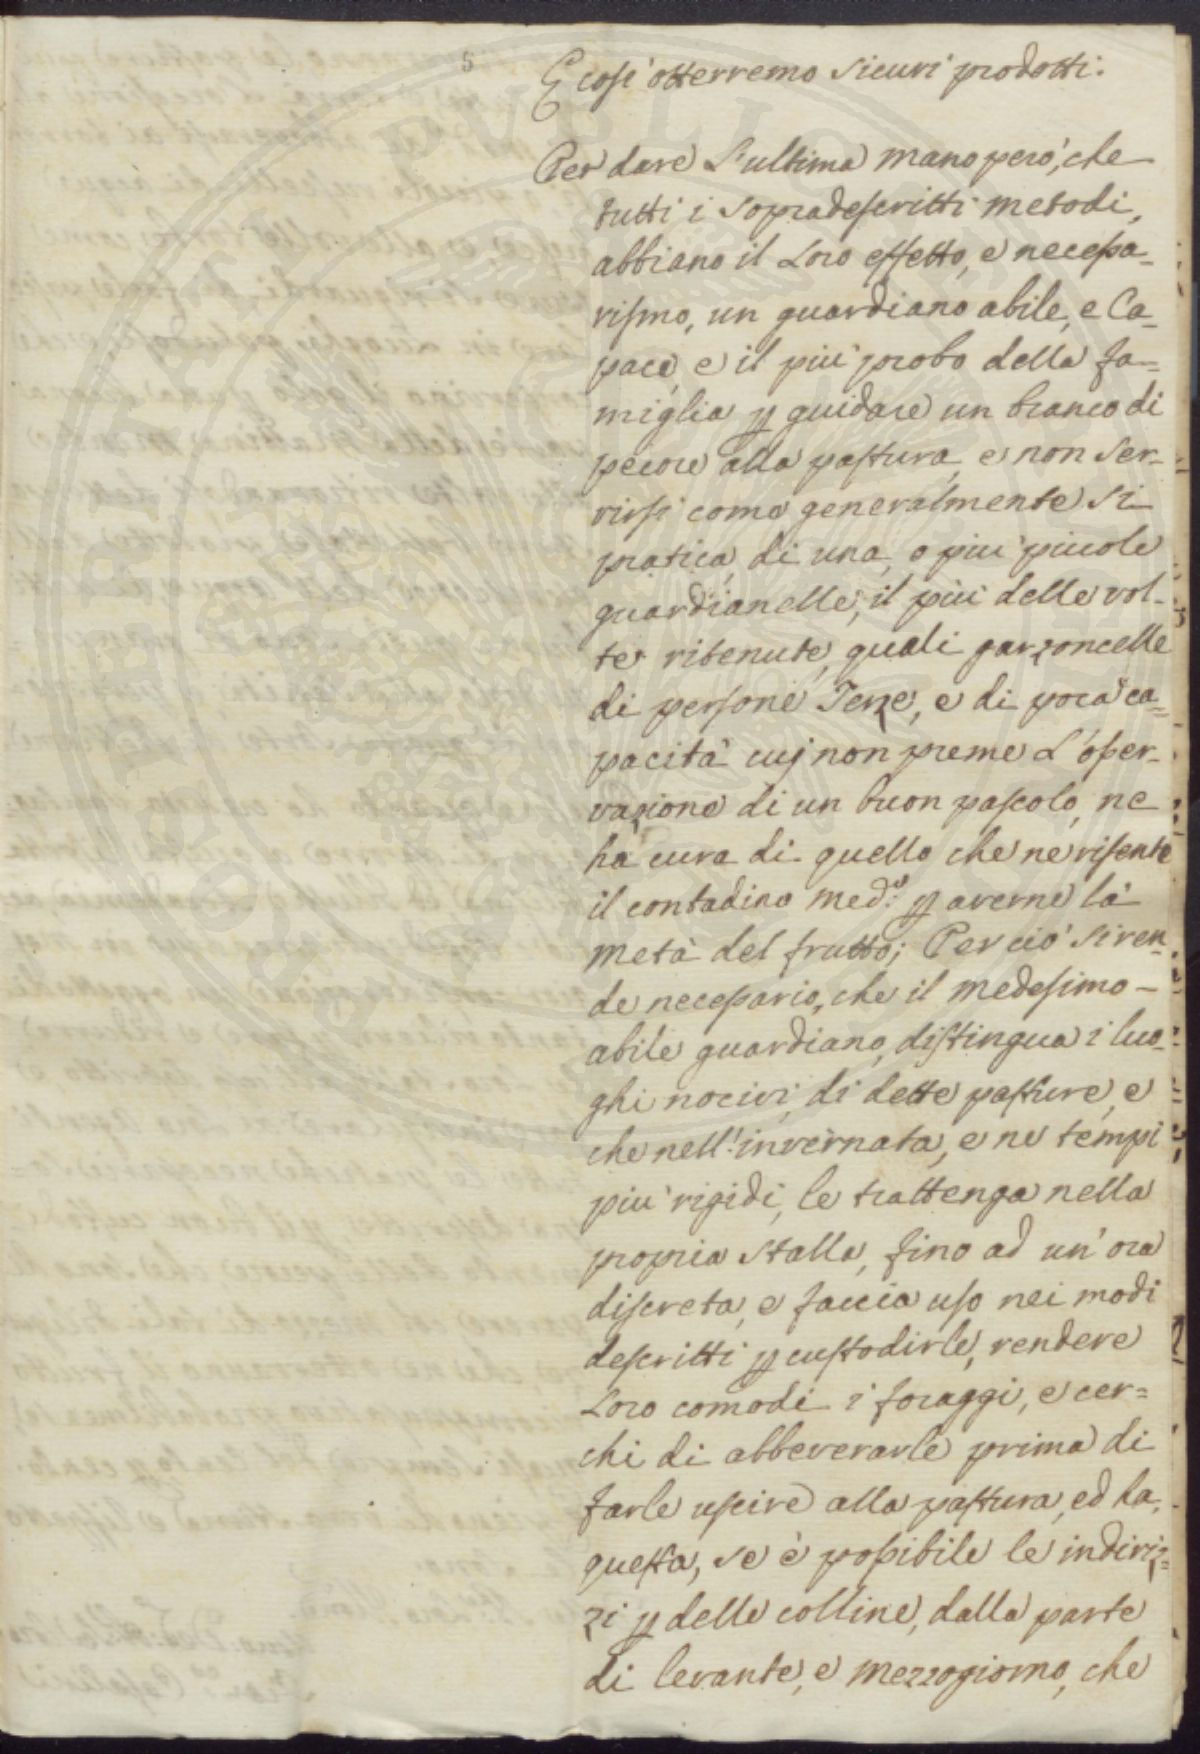 5
E così otterremo sicuri prodotti.
Per dare L'ultima mano però, che
tutti i sopradescritti metodi,
abbiano il Loro effetto, e necessa-
rismo, un guardiano abile, e Ca-
pace, e il più probo della fa-
miglia p guidare un branco di
pecore alla pastura, e non ser-
virsi come generalmente si
pratica, di una, o più piccole
guardianelle, il più delle vol-
te ritenute, quali garzoncelle
di persone Terze, e di poca ca-
pacità cuj non preme L'osser-
vazione di un buon pascolo, ne
ha cura di quello che ne risente
il contadino med.o p averne la
metà del frutto; Per ciò si ren-
de necessario, che il medesimo -
abile guardiano, distingua i luo-
ghi nocivi, di dette pasture, e
che nell'invernata, e ne tempi
più rigidi, le trattenga nella
propria stalla, fino ad un'ora
discreta, e faccia uso nei modi
descritti p custodirle, rendere
Loro comodi i foraggi, e cer=
chi di abbeverarle prima di
farle uscire alla pastura, ed ha
questa, se è possibile le indiriz=
zi p delle colline, dalla parte
di levante, e mezzogiorno, che